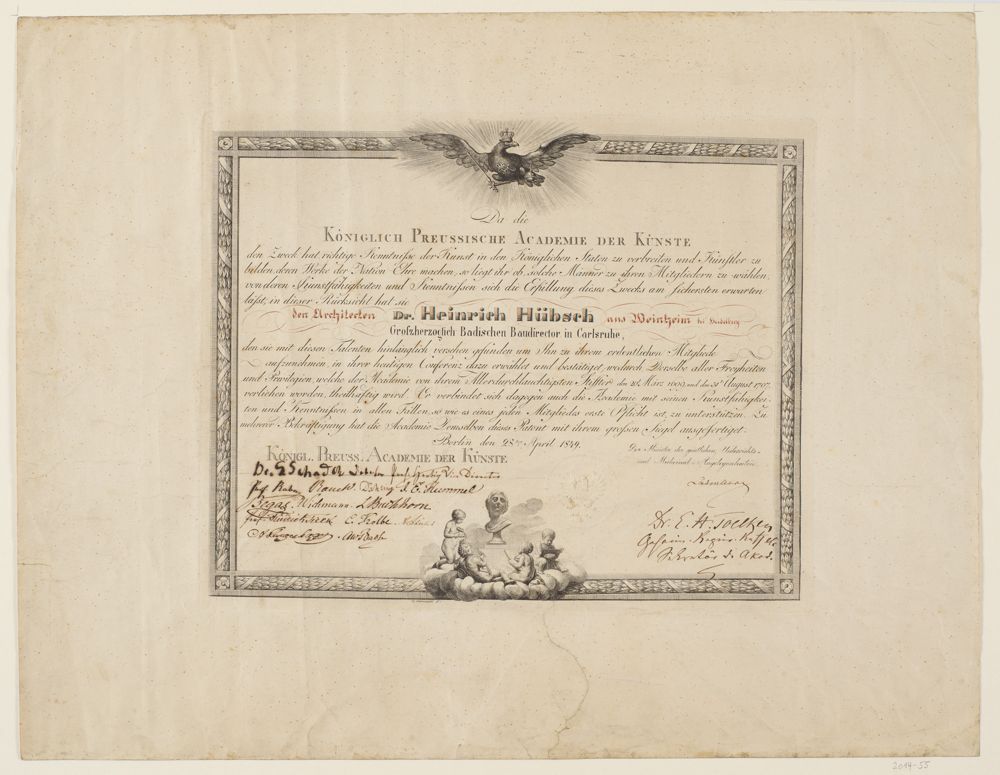 Da die
KÖNIGLICH PREUSSISCHE ACADEMIE DER KÜNSTE
den Zweck hat richtige Kenntniſse der Kunst in den Königlichen Staten zu verbreiten und Künstler zu
bilden, deren Werke der Nation Ehre machen, so liegt ihr ob, solche Männer zu ihren Mitgliedern zu wählen,
von deren Kunstfähigkeiten und Kenntniſsen sich die Erfüllung dieses Zwecks am sichersten erwarten
läſst, in dieser Rücksicht hat sie
den Architecten Dr. Heinrich Hübsch aus Weinheim bei Heidelberg
Groſzherzoglich Badischen Baudirector in Carlsruhe,
den sie mit diesen Talenten hinlänglich versehen gefunden um Ihn zu ihrem ordentlichen Mitgliede
aufzunehmen in ihrer heutigen Conferenz dazu erwählet und bestätiget, wodurch Derselbe aller Freyheiten
und Privilegien welche der Academie von ihrem Allerdurchlauchtigsten Stifter den 20. März 1699 und den August 1797.
verliehen worden, theilhaftig wird. Er verbindet sich dagegen auch die Academie mit seinen Kunstfähigkei-
ten und Kenntniſsen in allen Fällen, so wie es eines jeden Mitgliedes erste Pflicht ist, zu unterstützen. Zu
mehrerer Bekräftigung hat die Academie Demselben dieses Patent mit ihrem groſsen Siegel ausgefertiget.
Berlin den April 1849.
KÖNIGL. PREUSS. ACADEMIE DER KÜNSTE
Der Minister der geistlichen, Unterrichts-
und Medicinal-Angelegenheiten
Dr. G Schadow Director Prof. Vice Director
Ladenberg
Prof. Rabe Rauch J. E. Hummel
Begas Wichmann L Buchhorn
Dr. E. H. Toelken
C. Kolbe
Geheim. Regier.
Aug Bach
Sekretär d. Akad.
2014-55